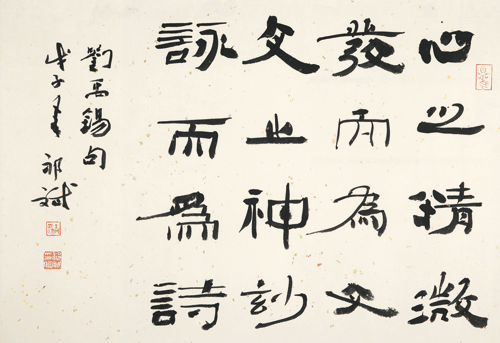 心之精微
發而為文
文之神妙
詠而為詩
劉禹錫句
戊子年祁斌